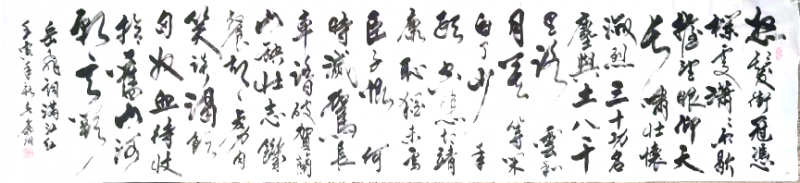 怒髮衝冠憑
欄處瀟瀟雨歇
擡望眼仰天
長嘯壯懷
激烈三十功名
塵與土八千
里路雲和
月莫等閑
白了少年
頭空悲切靖
康恥猶未雪
臣子恨何
時滅駕長
車踏破賀蘭
山缺壯志饑
餐胡虜肉
笑談渴飲
匈奴血待從
拾舊山河
朝天闕
岳飛詞滿江紅
壬寅年秋